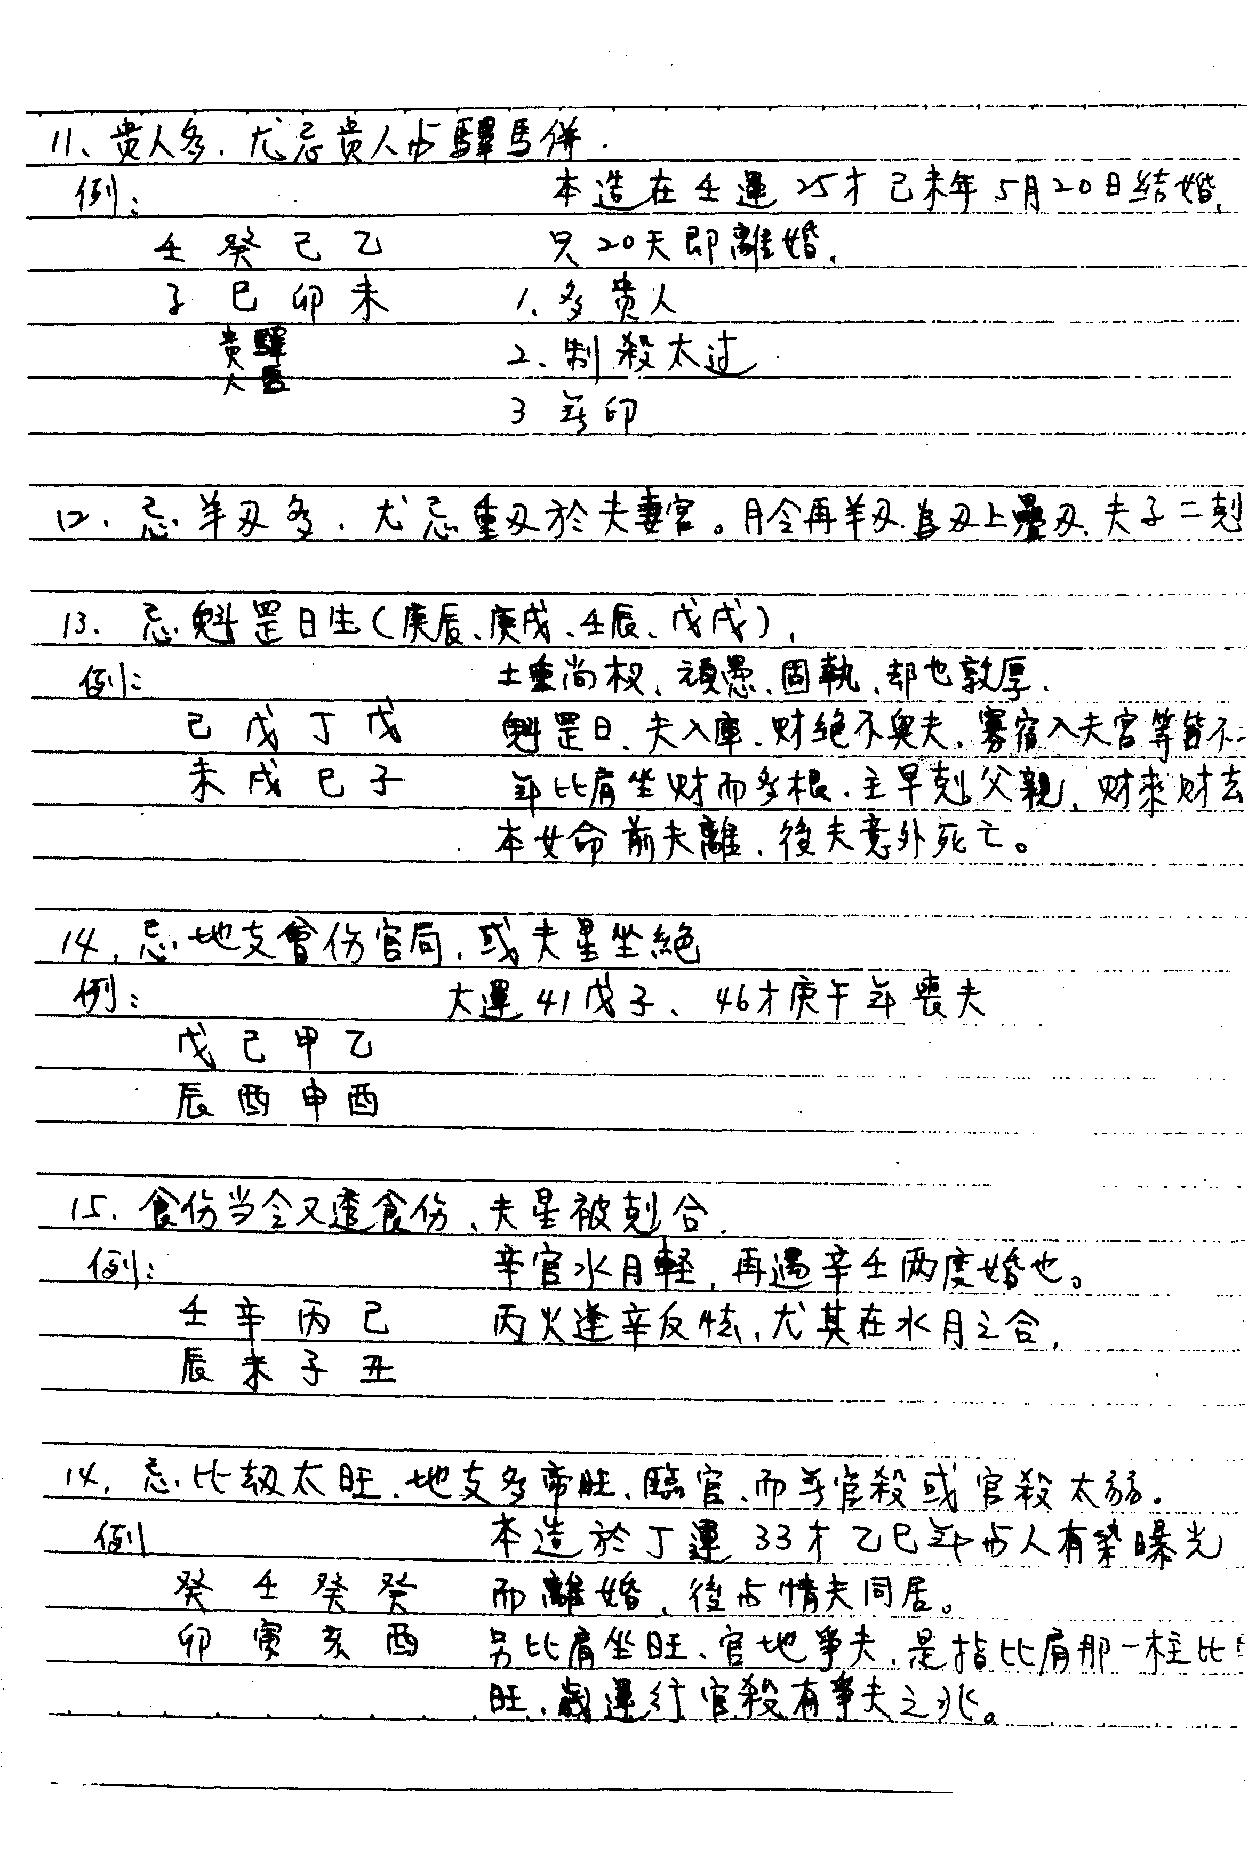 11、贵人多.尤忌贵人与驛馬併.
例:
本造在壬運25才己未年5月20日结婚,
壬癸己乙
只20天即離婚.
子巳卯未
1.多贵人
贵驛
2、制殺太过
人馬
3無印
12、忌羊刃多.尤忌重刃於夫妻宮。月令再羊刃為刃上疊刃.夫子二剋
13.忌魁罡日生(庚辰、庚戌、壬辰、戊戌),
例:
土重尚权、頑愚、固執、却也敦厚.
己戊丁戊
魁罡日、夫入庫、财绝不與夫、寡宿入夫宮等皆不
未戌巳子
年比肩坐财而多根.主早剋父親、财來财去
本女命前夫離.後夫意外死亡。
14.忌地支會伤官局,或夫星坐絕
例:
大運41戊子、46才庚午年喪夫
戊己甲乙
辰酉申酉
15.食伤当令又透食伤、夫星被剋合.
例:
辛官水月輕,再遇辛壬两度婚也。
壬辛丙己
丙火逢辛反怯,尤其在水月之合,
辰未子丑
14.忌比劫太旺.地支多帝旺、臨官、而無官殺或官殺太弱.
例
本造於丁運33才乙巳年与人有染曝光
癸壬癸癸
而離婚、後与情夫同居。
卯寅亥酉
另比肩坐旺、官地爭夫、是指比肩那一柱比
旺、歲運行官殺有爭夫之兆。